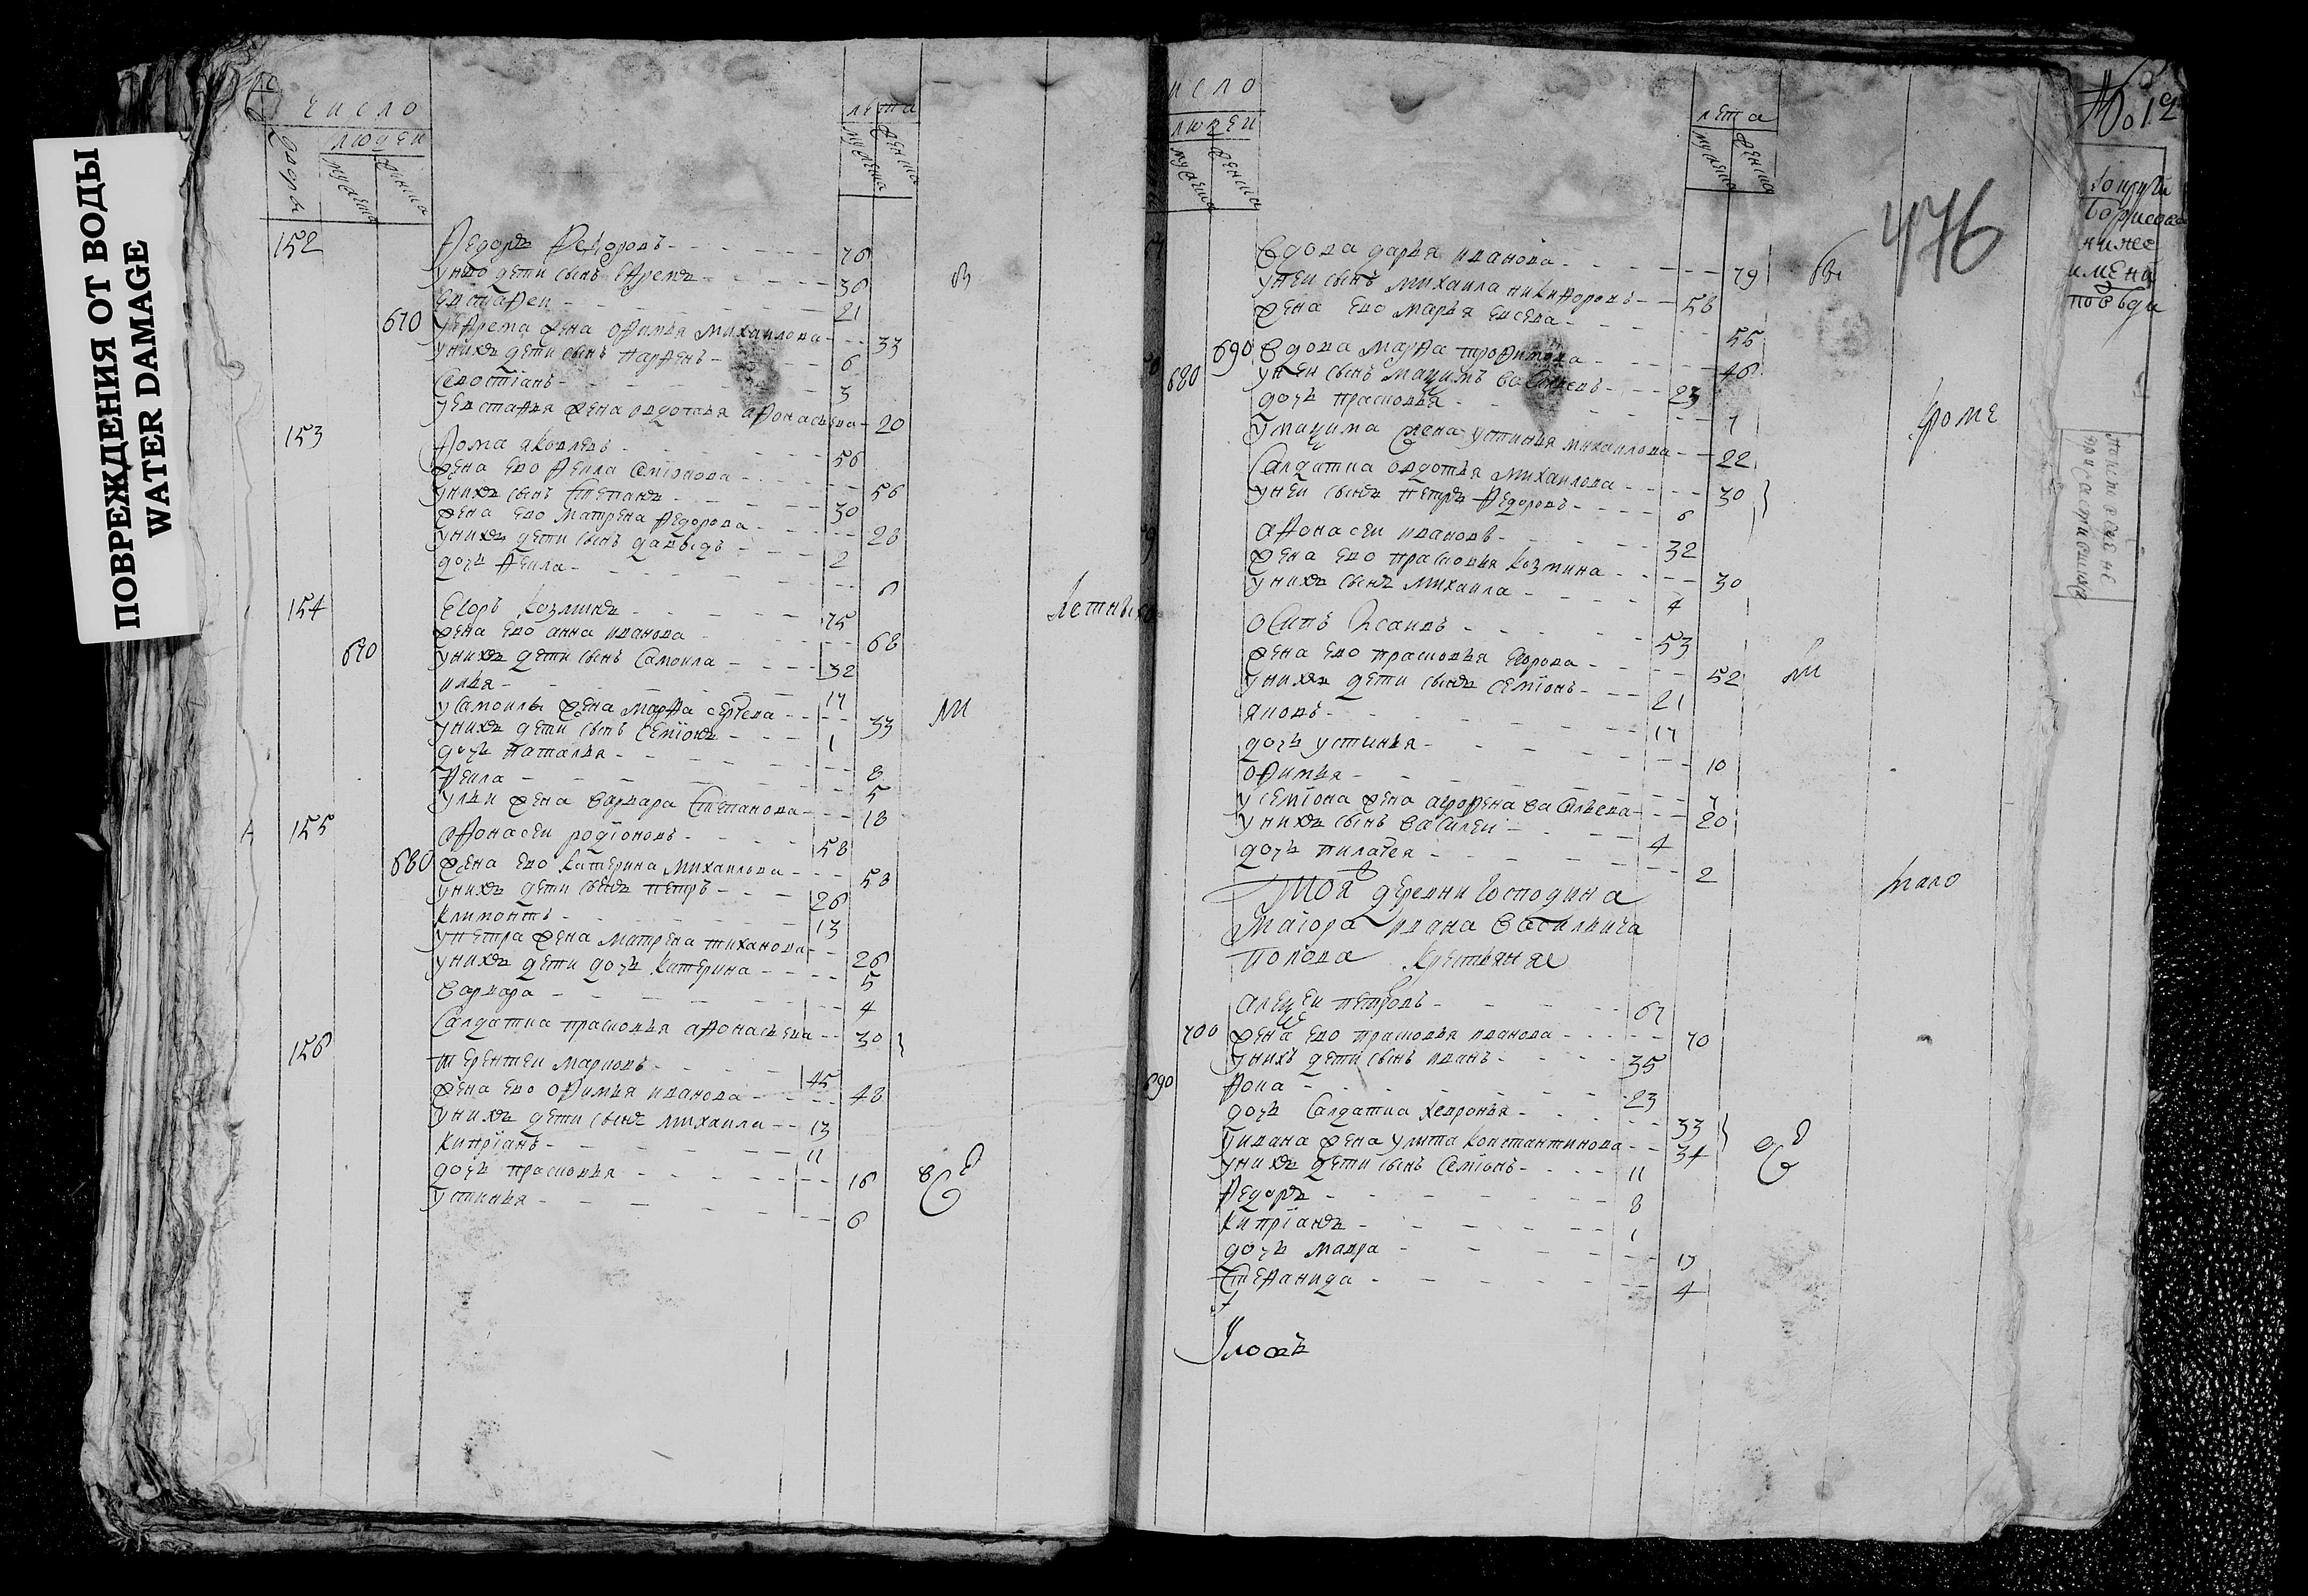 ПОВРЕЖДЕНИЯ ОТ ВОДЫ
WATER DAMAGE
число
людей
дворы
мужеска
женска
лета
мужеска
женска
152
Федоръ 76
у него дети сынъ Ефремъ 36
Евстафеи 21
670 у Ефрема жена офимья михаилова 33
у нихъ дети сынъ парфенъ 6
севостіанъ 3
у Евстафья жена овдотья афонасьева 20
153 фома яковлевъ 56
жена ево фекла семіонова 56
у нихъ сынъ степанъ 30
жена ево матрена федорова 28
у нихъ дети сынъ давыдъ 2
дочь фекла 6
летныхъ
154 Егоръ козминъ 75
жена ево анна иванова 68
670 у нихъ дети сынъ самоила 32
илья 17
у самоилы жена марфа сергеева 33
у нихъ дети сынъ семіонъ 1
дочь наталья 8
фекла 5
у ильи жена варвара степанова 18
155 афонасеи родіоновъ 58
680 жена ево катерина михаилова 58
у нихъ дети сынъ петръ 26
климонтъ 13
у петра жена матрена тиханова 26
у нихъ дети дочь катерина 5
варвара 4
салдатка прасковья афонасьева 30
156 терентеи марковъ 45
жена ево офимья иванова 48
у нихъ дети сынъ михаила 13
кипріанъ 11
дочь прасковья 16
устинья 6
число
людей
мужеска
женска
лета
мужеска
женска
476
вдова дарья иванова 79
у неи сынъ михаила никифоровъ 58
жена ево марья евсева 55
690 вдова марфа трофимова 46
680 у неи сынъ максимъ васильевъ 23
дочь прасковья 7
кроме
у максима жена устинья михаилова 22
салдатка овдотья михаилова 30
у неи сынъ петръ федоровъ 6
афонасеи ивановъ 32
жена ево прасковья козмина 30
у нихъ сынъ михаила 4
осипъ исаевъ 53
жена ево прасковья егорова 52
у нихъ дети сынъ семіонъ 21
яковъ 17
дочь устинья 10
офимья 7
у семіона жена агрофена васильева 20
у нихъ сынъ василеи 4
дочь пилагея 2
тои деревни господина
маіора ивана васильича
попова крестьяня
мало
алексеи петровъ 67
700 жена ево прасковья иванова 70
у нихъ дети сынъ иванъ 35
690 фока 23
дочь салдатка хевронья 33
у ивана жена улита константинова 34
у нихъ дети сынъ семіонъ 11
федоръ 8
кипріанъ 1
дочь мавра 13
степанида 4